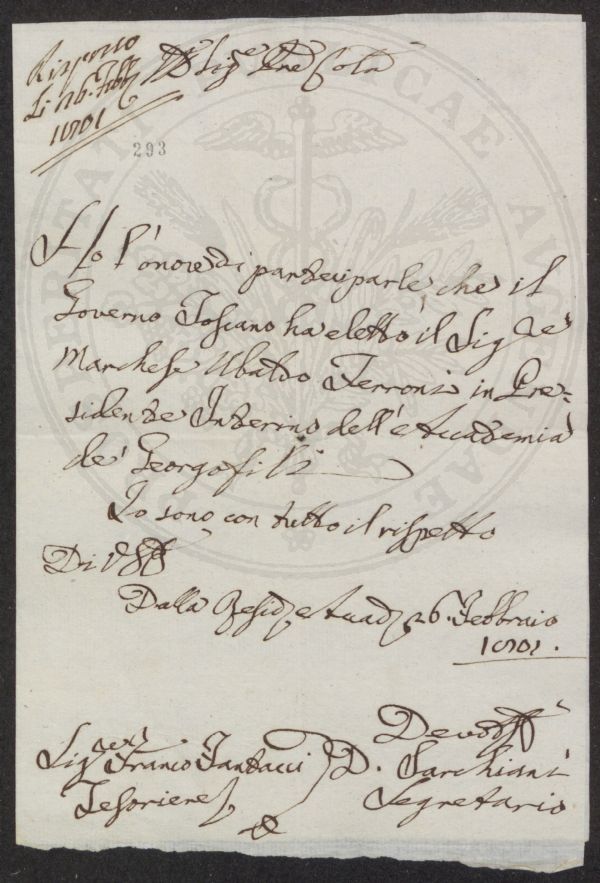 Risposto
Li 26. Febb.
1801
Sig.re P.ne Col.mo
293
Ho l'onore di parteciparle che il
Governo Toscano ha eletto il Sig.re
Marchese Ubaldo Ferroni in Pre=
sidente Interino dell'Accademia
de' Georgofili
Io sono con tutto il rispetto
Di V.S.
Dalla Resid. Accad. 26. Febbraio
1801.
Sig.re Franco Fantacci
Tesoriere
D. Sarchiani
Segretario